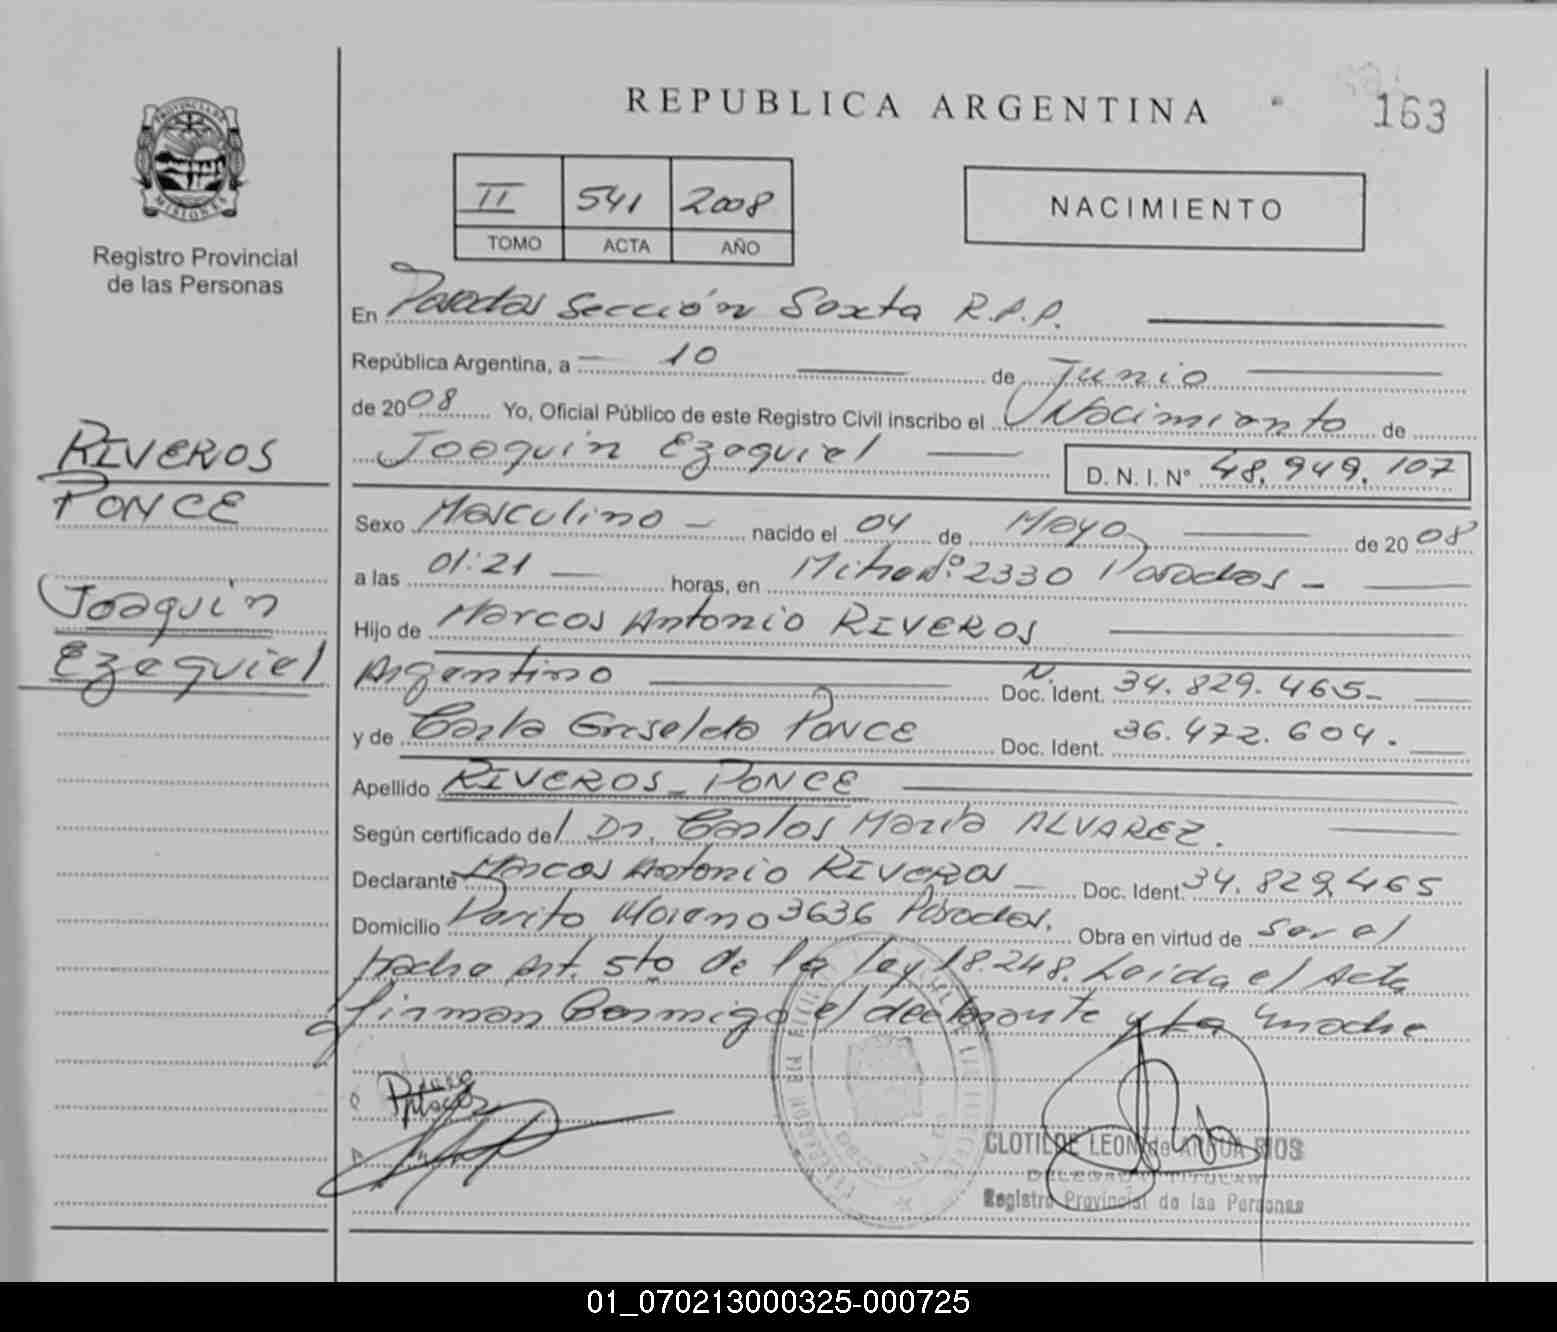 REPUBLICA ARGENTINA
163
PROVINCIA DE
MISIONES
Registro Provincial
de las Personas
II 541 2008
TOMO ACTA AÑO
NACIMIENTO
En Posadas Sección Sexta R.P.P.
República Argentina, a 10 de Junio
de 2008 Yo, Oficial Público de este Registro Civil inscribo el Nacimiento de
Joaquin Ezequiel D. N. I. N° 48.949.107
RIVEROS
PONCE
Joaquin
Ezequiel
Sexo Masculino - nacido el 04 de Mayo de 2008
a las 01:21 horas, en Mitre N° 2330 Posadas -
Hijo de Marcos Antonio RIVEROS
Argentino Doc. Ident. 34.829.465-
y de Carla Griselda PONCE Doc. Ident. 36.472.604.
Apellido RIVEROS - PONCE
Según certificado del Dr. Carlos María ALVAREZ.
Declarante Marcos Antonio RIVEROS Doc. Ident. 34.829.465
Domicilio Perito Moreno 3636 Posadas. Obra en virtud de ser el
padre Art. 5to de la ley 18.248. Leida el Acta
firman Conmigo el declarante y La madre
CLOTILDE LEON de RIOS
DELEGADA TITULAR
Registro Provincial de las Personas
01_070213000325-000725